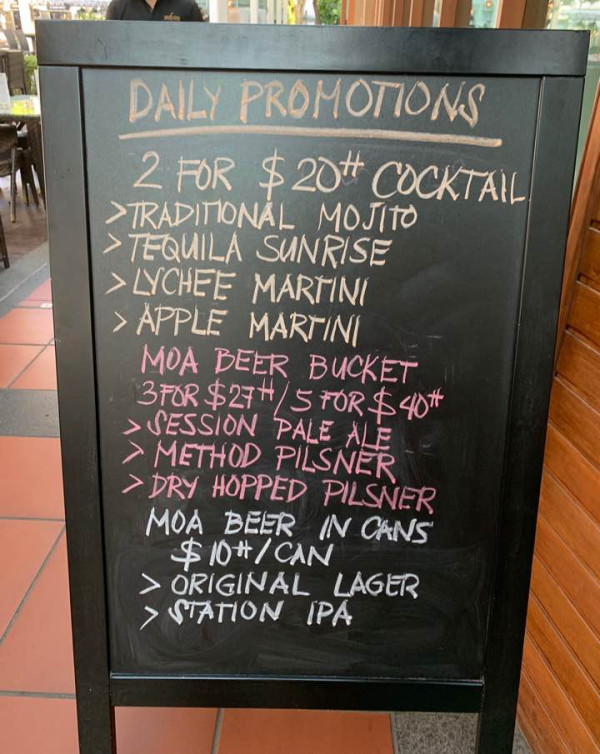 DAILY PROMOTIONS
2 FOR $20++ COCKTAIL
>TRADITIONAL MOJITO
>TEQUILA SUNRISE
>LYCHEE MARTINI
>APPLE MARTINI
MOA BEER BUCKET
3 FOR $27++/5 FOR $40++
>SESSION PALE ALE
>METHOD PILSNER
>DRY HOPPED PILSNER
MOA BEER IN CANS
$10++/CAN
>ORIGINAL LAGER
>STATION IPA